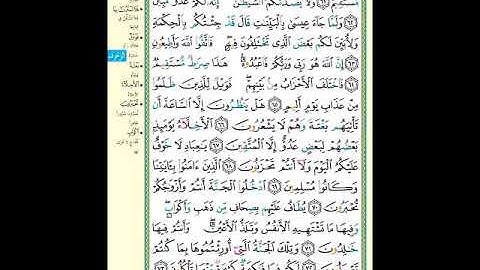 مُّسْتَقِيمٌ ٦١ وَلَا يَصُدَّنَّكُمُ ٱلشَّيْطَٰنُ إِنَّهُۥ لَكُمْ عَدُوٌّ مُّبِينٌ
٦٢ وَلَمَّا جَآءَ عِيسَىٰ بِٱلْبَيِّنَٰتِ قَالَ قَدْ جِئْتُكُم بِٱلْحِكْمَةِ
وَلِأُبَيِّنَ لَكُم بَعْضَ ٱلَّذِى تَخْتَلِفُونَ فِيهِ فَٱتَّقُوا۟ ٱللَّهَ وَأَطِيعُونِ
٦٣ إِنَّ ٱللَّهَ هُوَ رَبِّى وَرَبُّكُمْ فَٱعْبُدُوهُ هَٰذَا صِرَٰطٌ مُّسْتَقِيمٌ
٦٤ فَٱخْتَلَفَ ٱلْأَحْزَابُ مِنۢ بَيْنِهِمْ فَوَيْلٌ لِّلَّذِينَ ظَلَمُوا۟
مِنْ عَذَابِ يَوْمٍ أَلِيمٍ ٦٥ هَلْ يَنظُرُونَ إِلَّا ٱلسَّاعَةَ أَن
تَأْتِيَهُم بَغْتَةً وَهُمْ لَا يَشْعُرُونَ ٦٦ ٱلْأَخِلَّآءُ يَوْمَئِذٍۭ
بَعْضُهُمْ لِبَعْضٍ عَدُوٌّ إِلَّا ٱلْمُتَّقِينَ ٦٧ يَٰعِبَادِ لَا خَوْفٌ
عَلَيْكُمُ ٱلْيَوْمَ وَلَآ أَنتُمْ تَحْزَنُونَ ٦٨ ٱلَّذِينَ ءَامَنُوا۟ بِـَٔايَٰتِنَا
وَكَانُوا۟ مُسْلِمِينَ ٦٩ ٱدْخُلُوا۟ ٱلْجَنَّةَ أَنتُمْ وَأَزْوَٰجُكُمْ
تُحْبَرُونَ ٧٠ يُطَافُ عَلَيْهِم بِصِحَافٍ مِّن ذَهَبٍ وَأَكْوَابٍ
وَفِيهَا مَا تَشْتَهِيهِ ٱلْأَنفُسُ وَتَلَذُّ ٱلْأَعْيُنُ وَأَنتُمْ فِيهَا
خَٰلِدُونَ ٧١ وَتِلْكَ ٱلْجَنَّةُ ٱلَّتِىٓ أُورِثْتُمُوهَا بِمَا كُنتُمْ
تَعْمَلُونَ ٧٢ لَكُمْ فِيهَا فَٰكِهَةٌ كَثِيرَةٌ مِّنْهَا تَأْكُلُونَ ٧٣